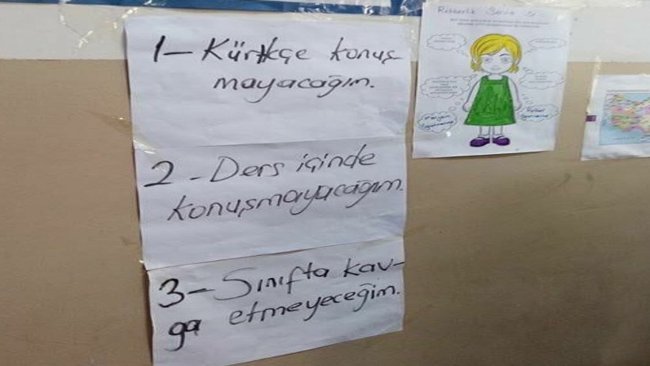 1- Kürtkçe konuş-
mayacağım.
2- Ders içinde
konuşmayacağım.
3- Sınıfta kav-
ga etmeyeceğim.
Rehberlik Servisi